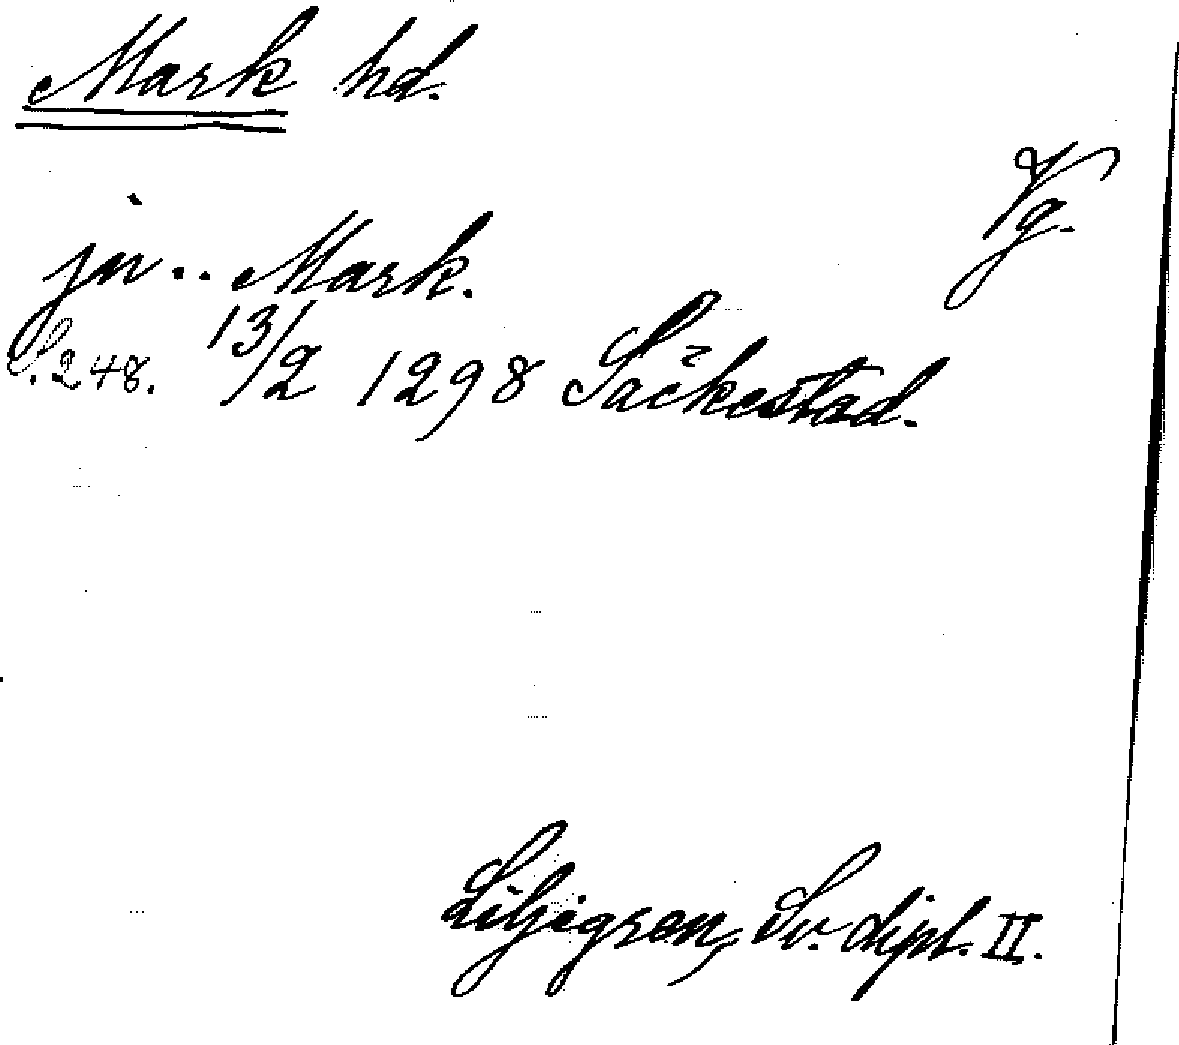 Mark hd.
Vg.
jn .. Mark.
S. 248. 13/2 1298 Säckestad.
Liljegren, Sv. dipl. II.